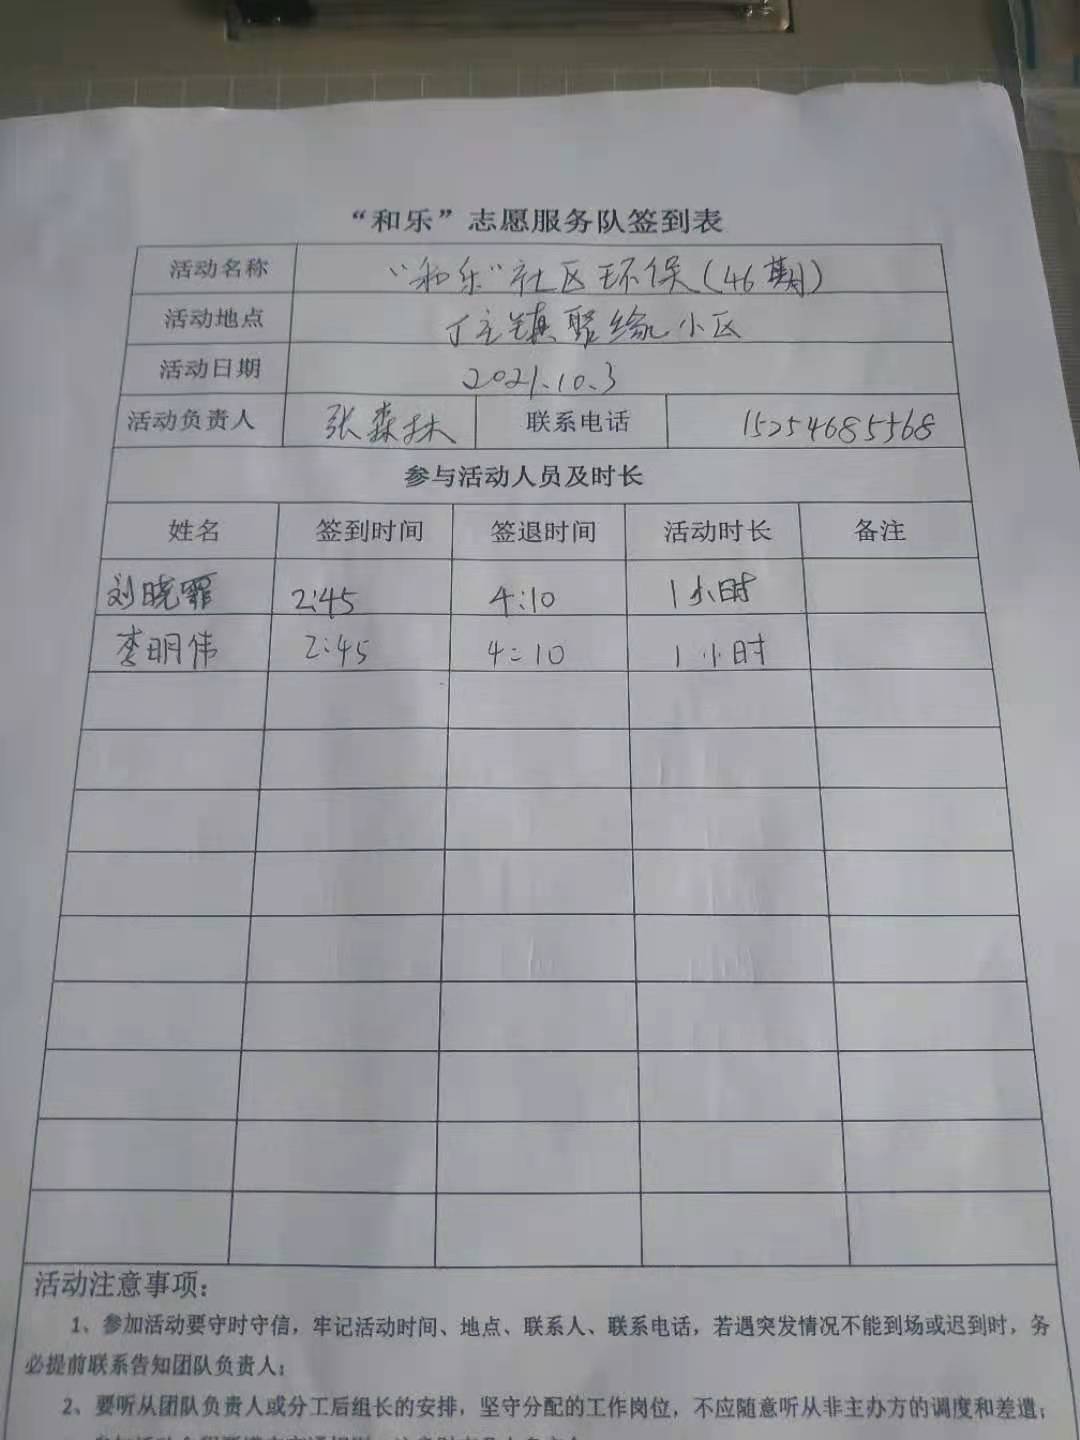 “和乐”志愿服务队签到表
活动名称 “和乐”社区环保(46期)
活动地点 丁庄镇聚缘小区
活动日期 2021.10.3
活动负责人 张森林 联系电话 15254685568
参与活动人员及时长
姓名 签到时间 签退时间 活动时长 备注
刘晓霏 2:45 4:10 1小时
李明伟 2:45 4:10 1小时
活动注意事项:
1、参加活动要守时守信，牢记活动时间、地点、联系人、联系电话，若遇突发情况不能到场或迟到时，务
必提前联系告知团队负责人；
2、要听从团队负责人或分工后组长的安排，坚守分配的工作岗位，不应随意听从非主办方的调度和差遣；